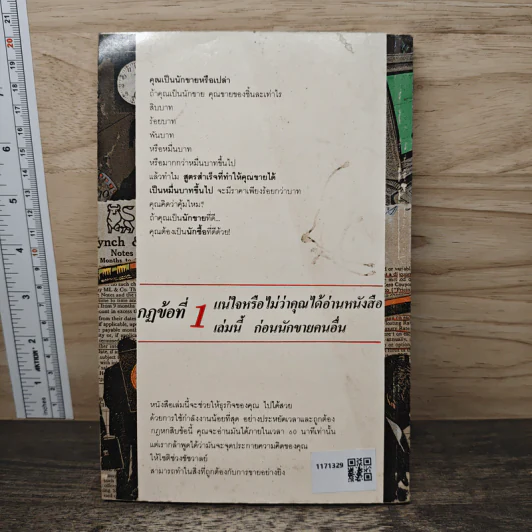 คุณเป็นนักขายหรือเปล่า
ถ้าคุณเป็นนักขาย คุณขายของชิ้นละเท่าไร
สิบบาท
ร้อยบาท
พันบาท
หรือหมื่นบาท
หรือมากกว่าหมื่นบาทขึ้นไป
แล้วทำไม สูตรสำเร็จที่ทำให้คุณขายได้
เป็นหมื่นบาทขึ้นไป จะมีราคาเพียงร้อยกว่าบาท
คุณคิดว่าคุ้มไหม?
ถ้าคุณเป็นนักขายที่ดี...
คุณต้องเป็นนักซื้อที่ดีด้วย!
กฎข้อที่ 1 แน่ใจหรือไม่ว่าคุณได้อ่านหนังสือ
เล่มนี้ ก่อนนักขายคนอื่น
หนังสือเล่มนี้จะช่วยให้ธุรกิจของคุณ ไปได้สวย
ด้วยการใช้กำลังงานน้อยที่สุด อย่างประหยัดเวลาและถูกต้อง
กฎหกสิบข้อนี้ คุณจะอ่านมันได้ภายในเวลา ๖๐ นาทีเท่านั้น
แต่เรากล้าพูดได้ว่ามันจะจุดประกายความคิดของคุณ
ให้โชติช่วงชัชวาลย์
สามารถทำในสิ่งที่ถูกต้องกับการขายอย่างยิ่ง
1171329
ynch &
Notes
Months to